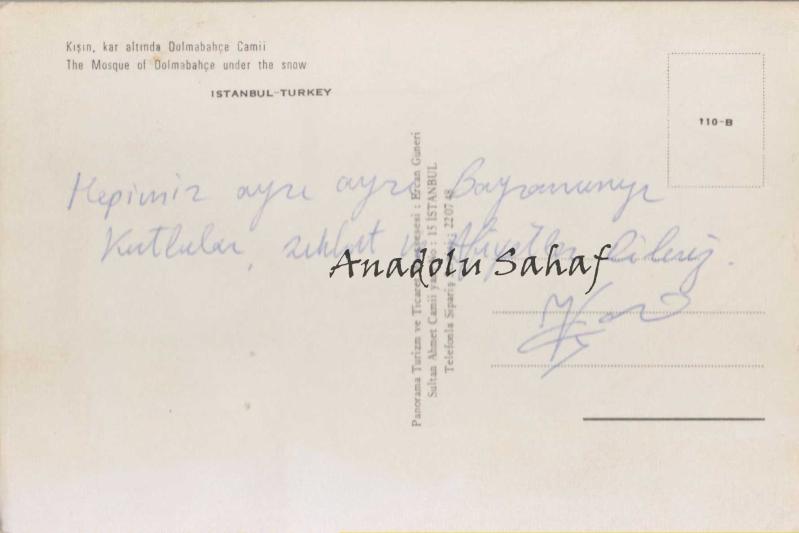 Kışın, kar altında Dolmabahçe Camii
The Mosque of Dolmabahçe under the snow
ISTANBUL-TURKEY
110-B
Hepimiz ayrı ayrı Bayramınızı
Kutlular, sıhhat ve Afiyetler dileriz.
Anadolu Sahaf
Panorama Turizm ve Ticaret : Ercan Guneri
Sultan Ahmet Camii : 15 İSTANBUL
Telefonla Sipariş : 22 07 48